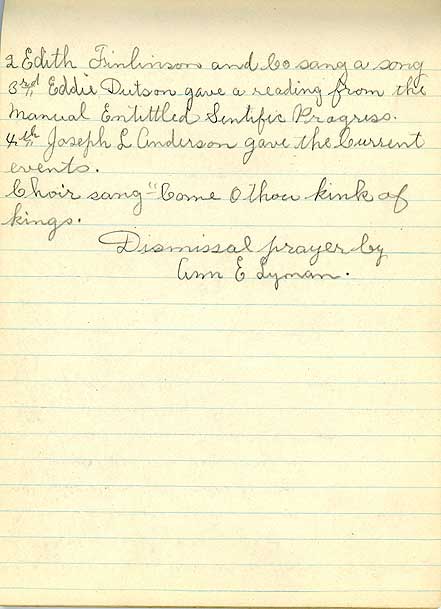 2 Edith Finlinson and Co sang a song
3rd Eddie Dutson gave a reading from the
Manual Entittled Sentific Progress.
4th Joseph L Anderson gave the Current
events.
Choir sang "Come O thou kink of
kings.
Dismissal prayer by
Ann E Lyman.